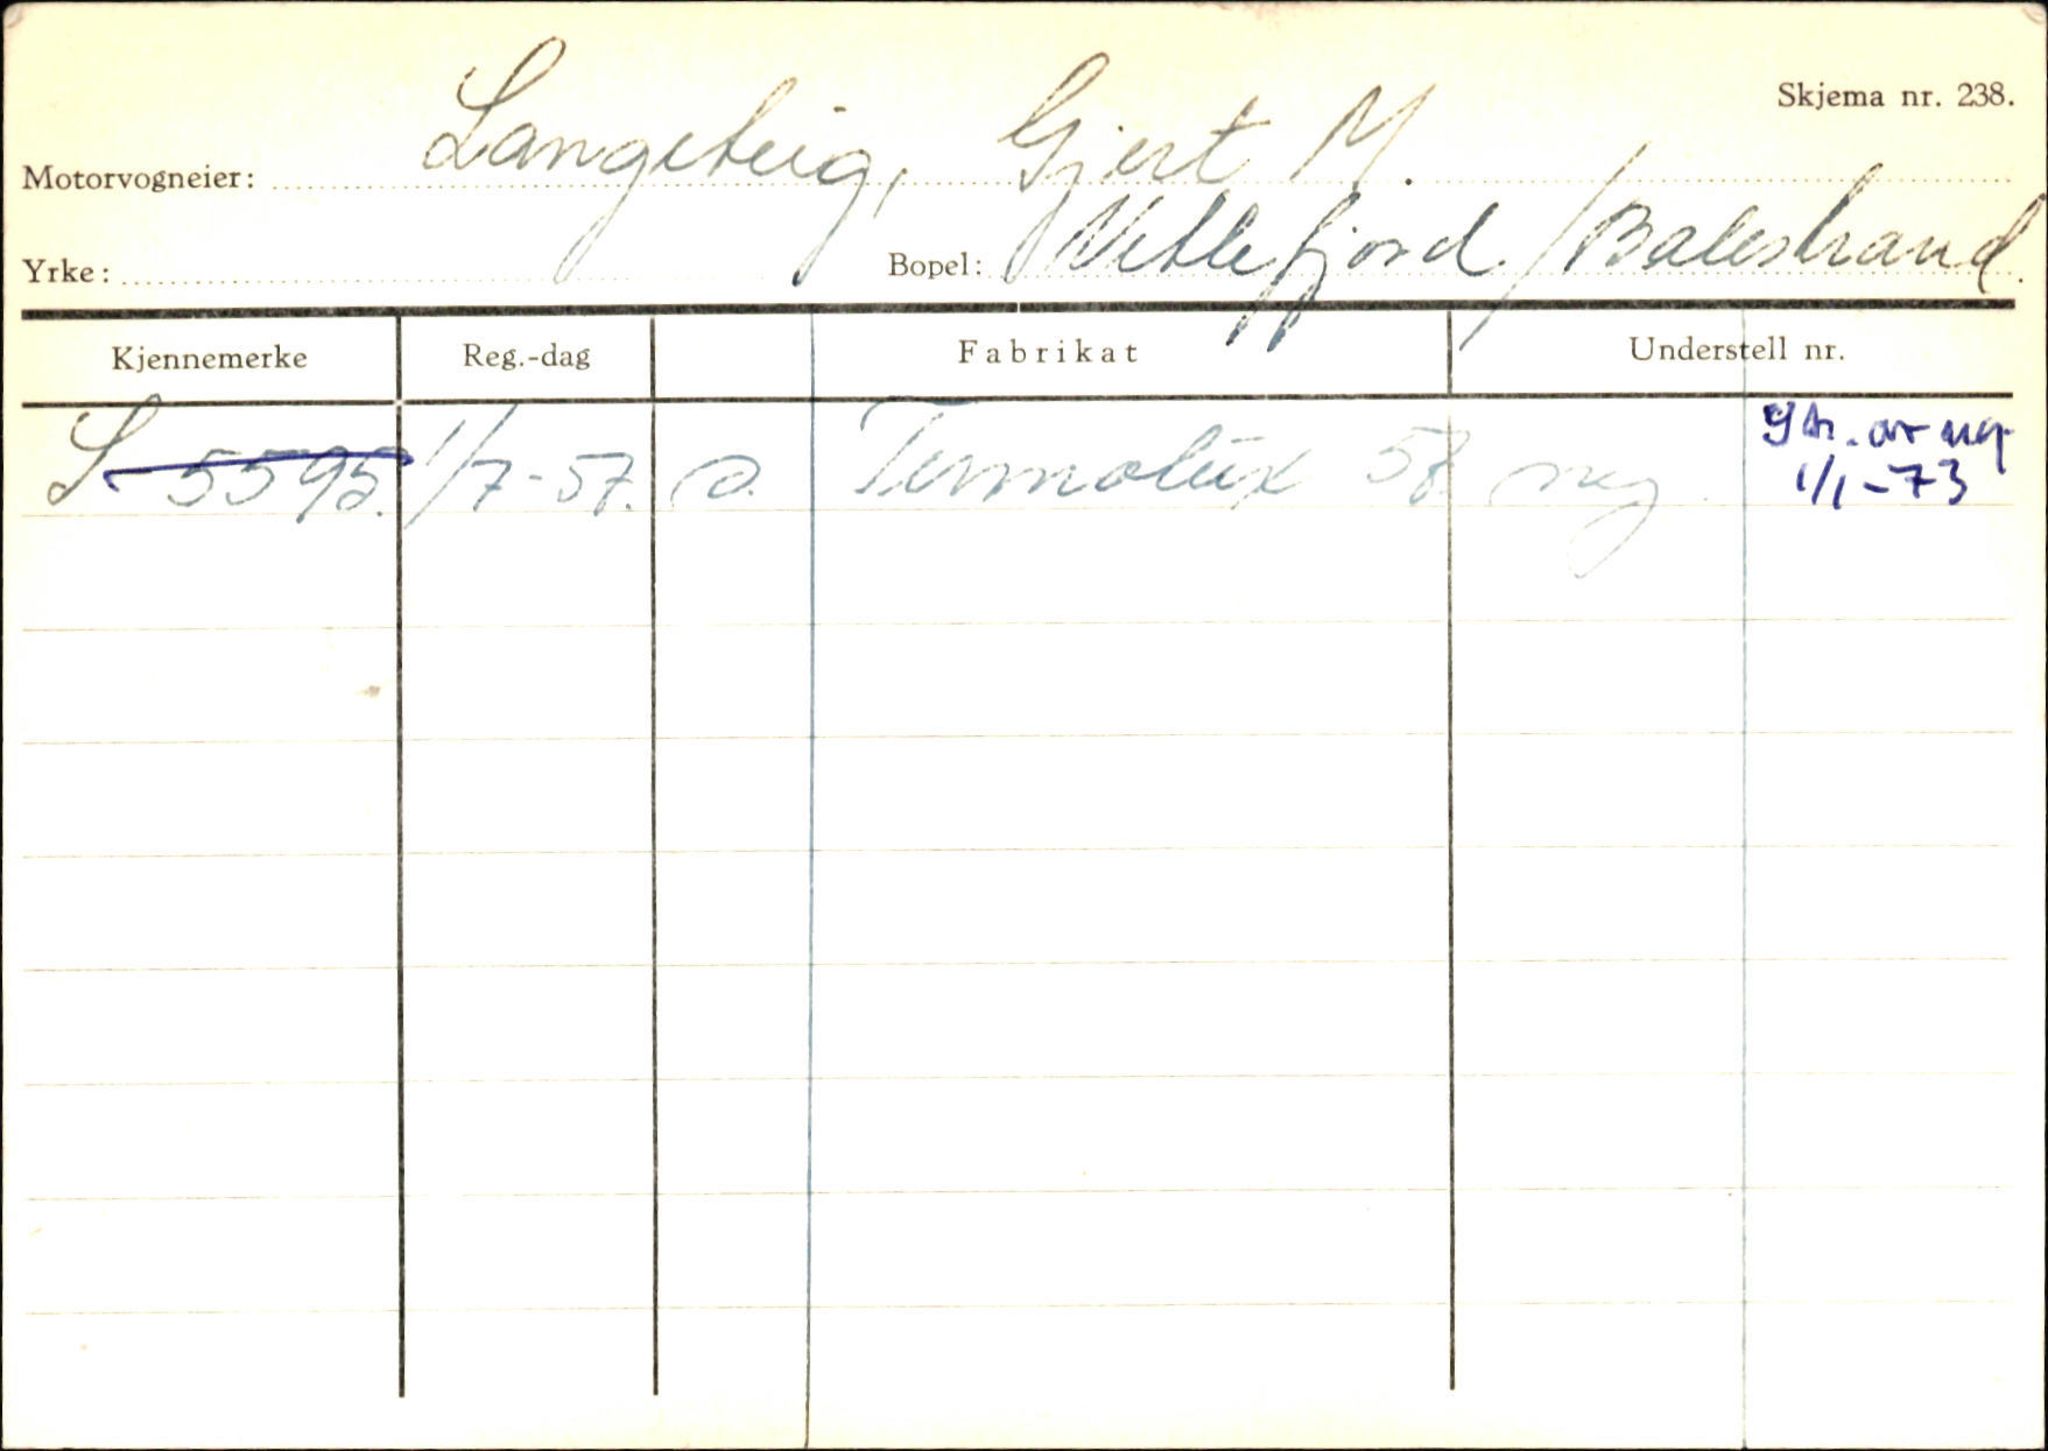 Skjema nr. 238.
Motorvogneier: Langeteig, Gjert M.
Yrke: Bopel: Vetlefjord/Balestrand.
Kjennemerke Reg.-dag Fabrikat Understell nr.
S-5595. 1/7-57. Termolüx 57. reg
av reg.
1/1-73